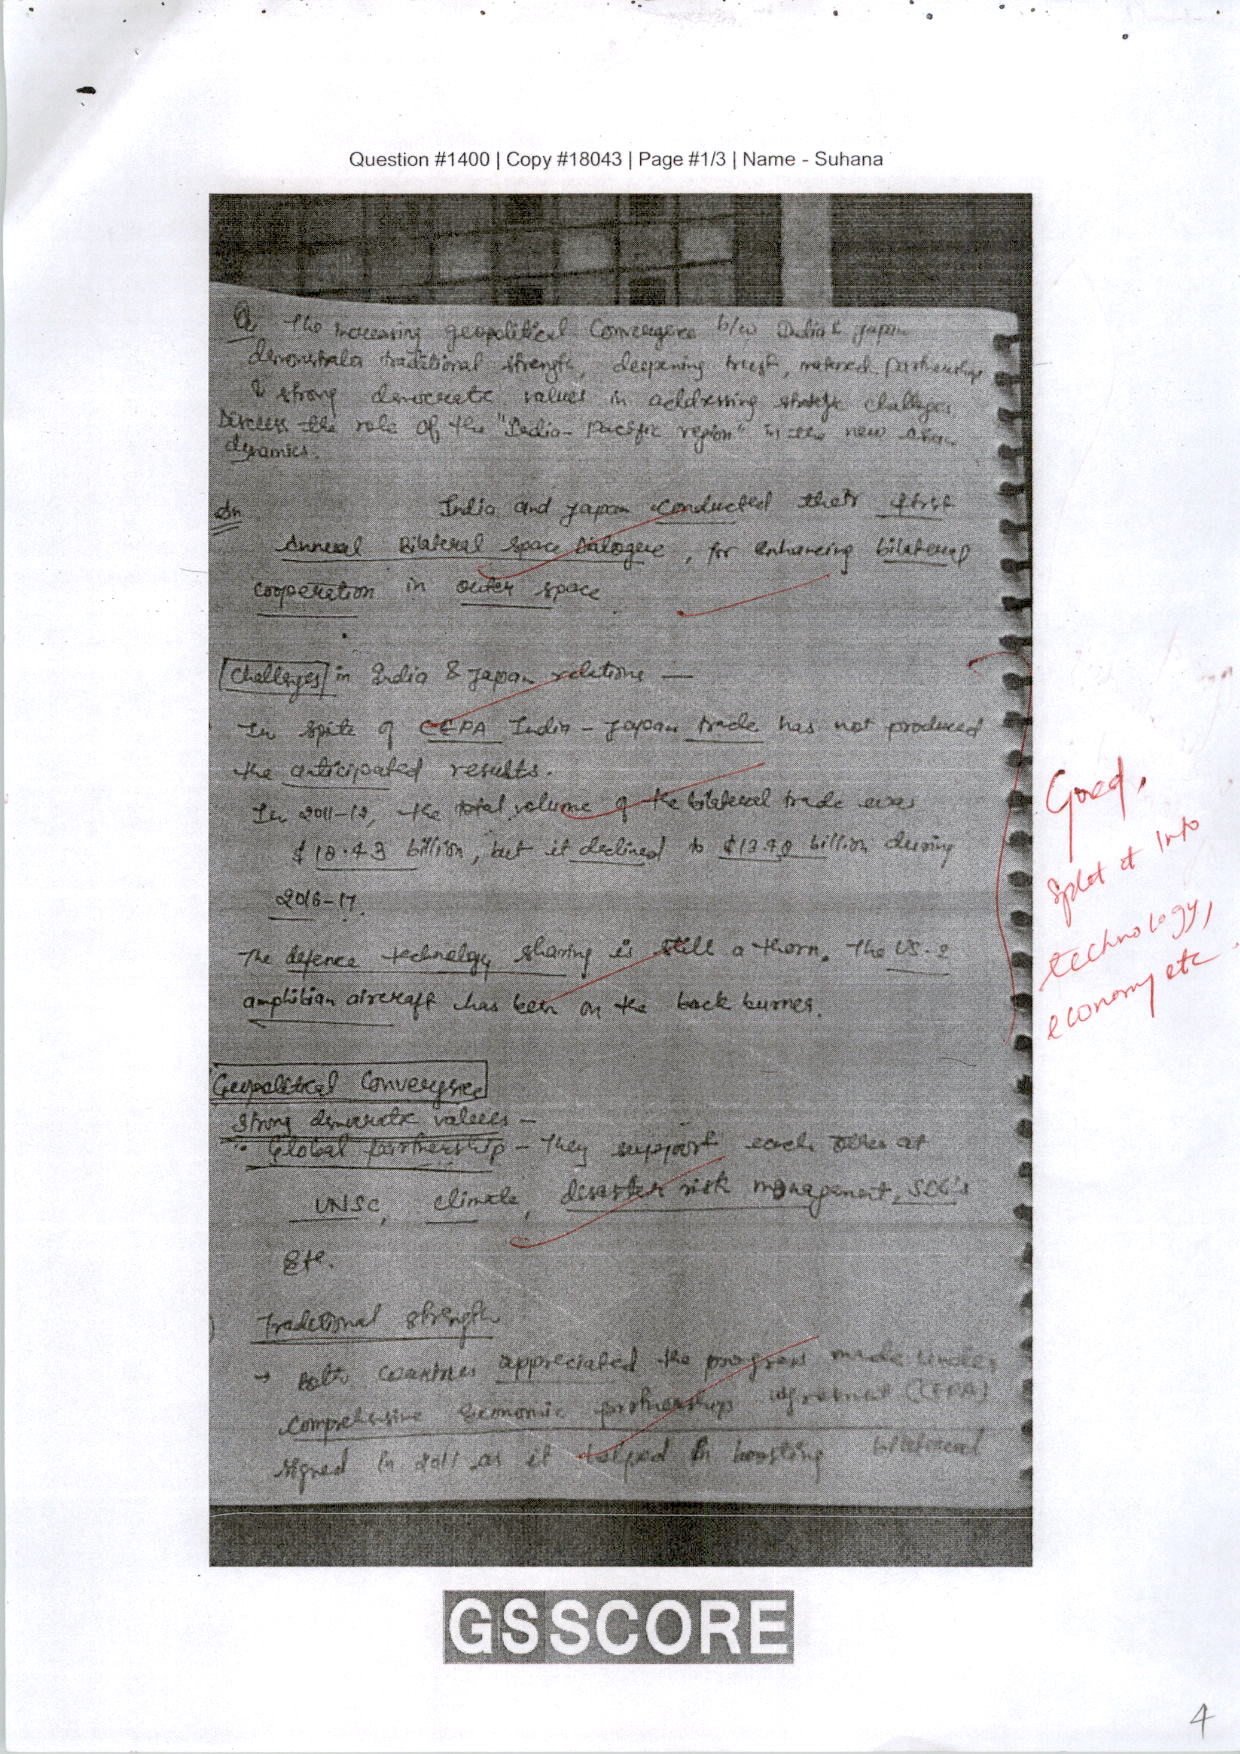 Question #1400 | Copy #18043 | Page #1/3 | Name - Suhana
Q. The increasing geopolitical Convergence b/w India & Japan
demonstrates traditional strength, deepening trust, matured partnership
& strong democratic values in addressing strategic challenges.
Discuss the role of the "India-Pacific region" in the new
dynamics.
Ans
India and Japan conducted their first
Annual Bilateral Space Dialogue, for enhancing bilateral
cooperation in outer space
Challenges in India & Japan relations —
In spite of CEPA India - Japan trade has not produced
the anticipated results.
In 2011-12, the total volume of the bilateral trade was
$ 18.43 billion, but it declined to billion during
2016-17.
The defence technology sharing is still a thorn. The US-2
amphibian aircraft has been on the back burner.
Good,
Split it into
technology,
economy etc
Geopolitical Convergence
Strong democratic values -
Global partnership - They support each other at
UNSC, climate, desaster risk management, SDG's
Etc.
Traditional strength
→ Both Countries appreciated the progress made under
comprehensive Economic partnership agreement (CEPA)
signed in 2011 as it helped in boosting bilateral
GSSCORE
4